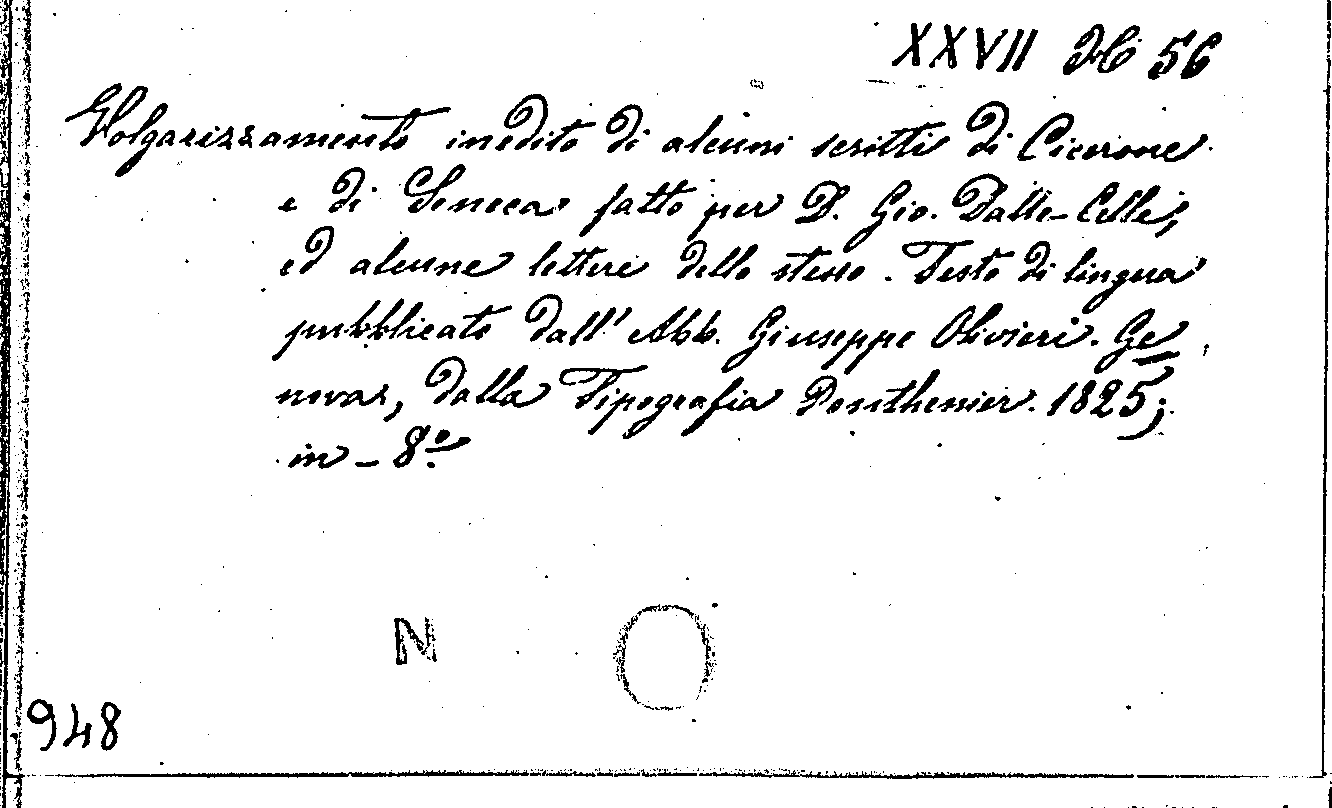 XXVII H 56
Volgarizzamento inedito di alcuni scritti di Cicerone
e di Seneca fatto per D. Gio. Dalle-Celle,
ed alcune lettere dello stesso. Testo di lingua
pubblicato dall' Abb. Giuseppe Olivieri. Ge
nova, dalla Tipografia Ponthenier. 1825;
in-8.º
N
948